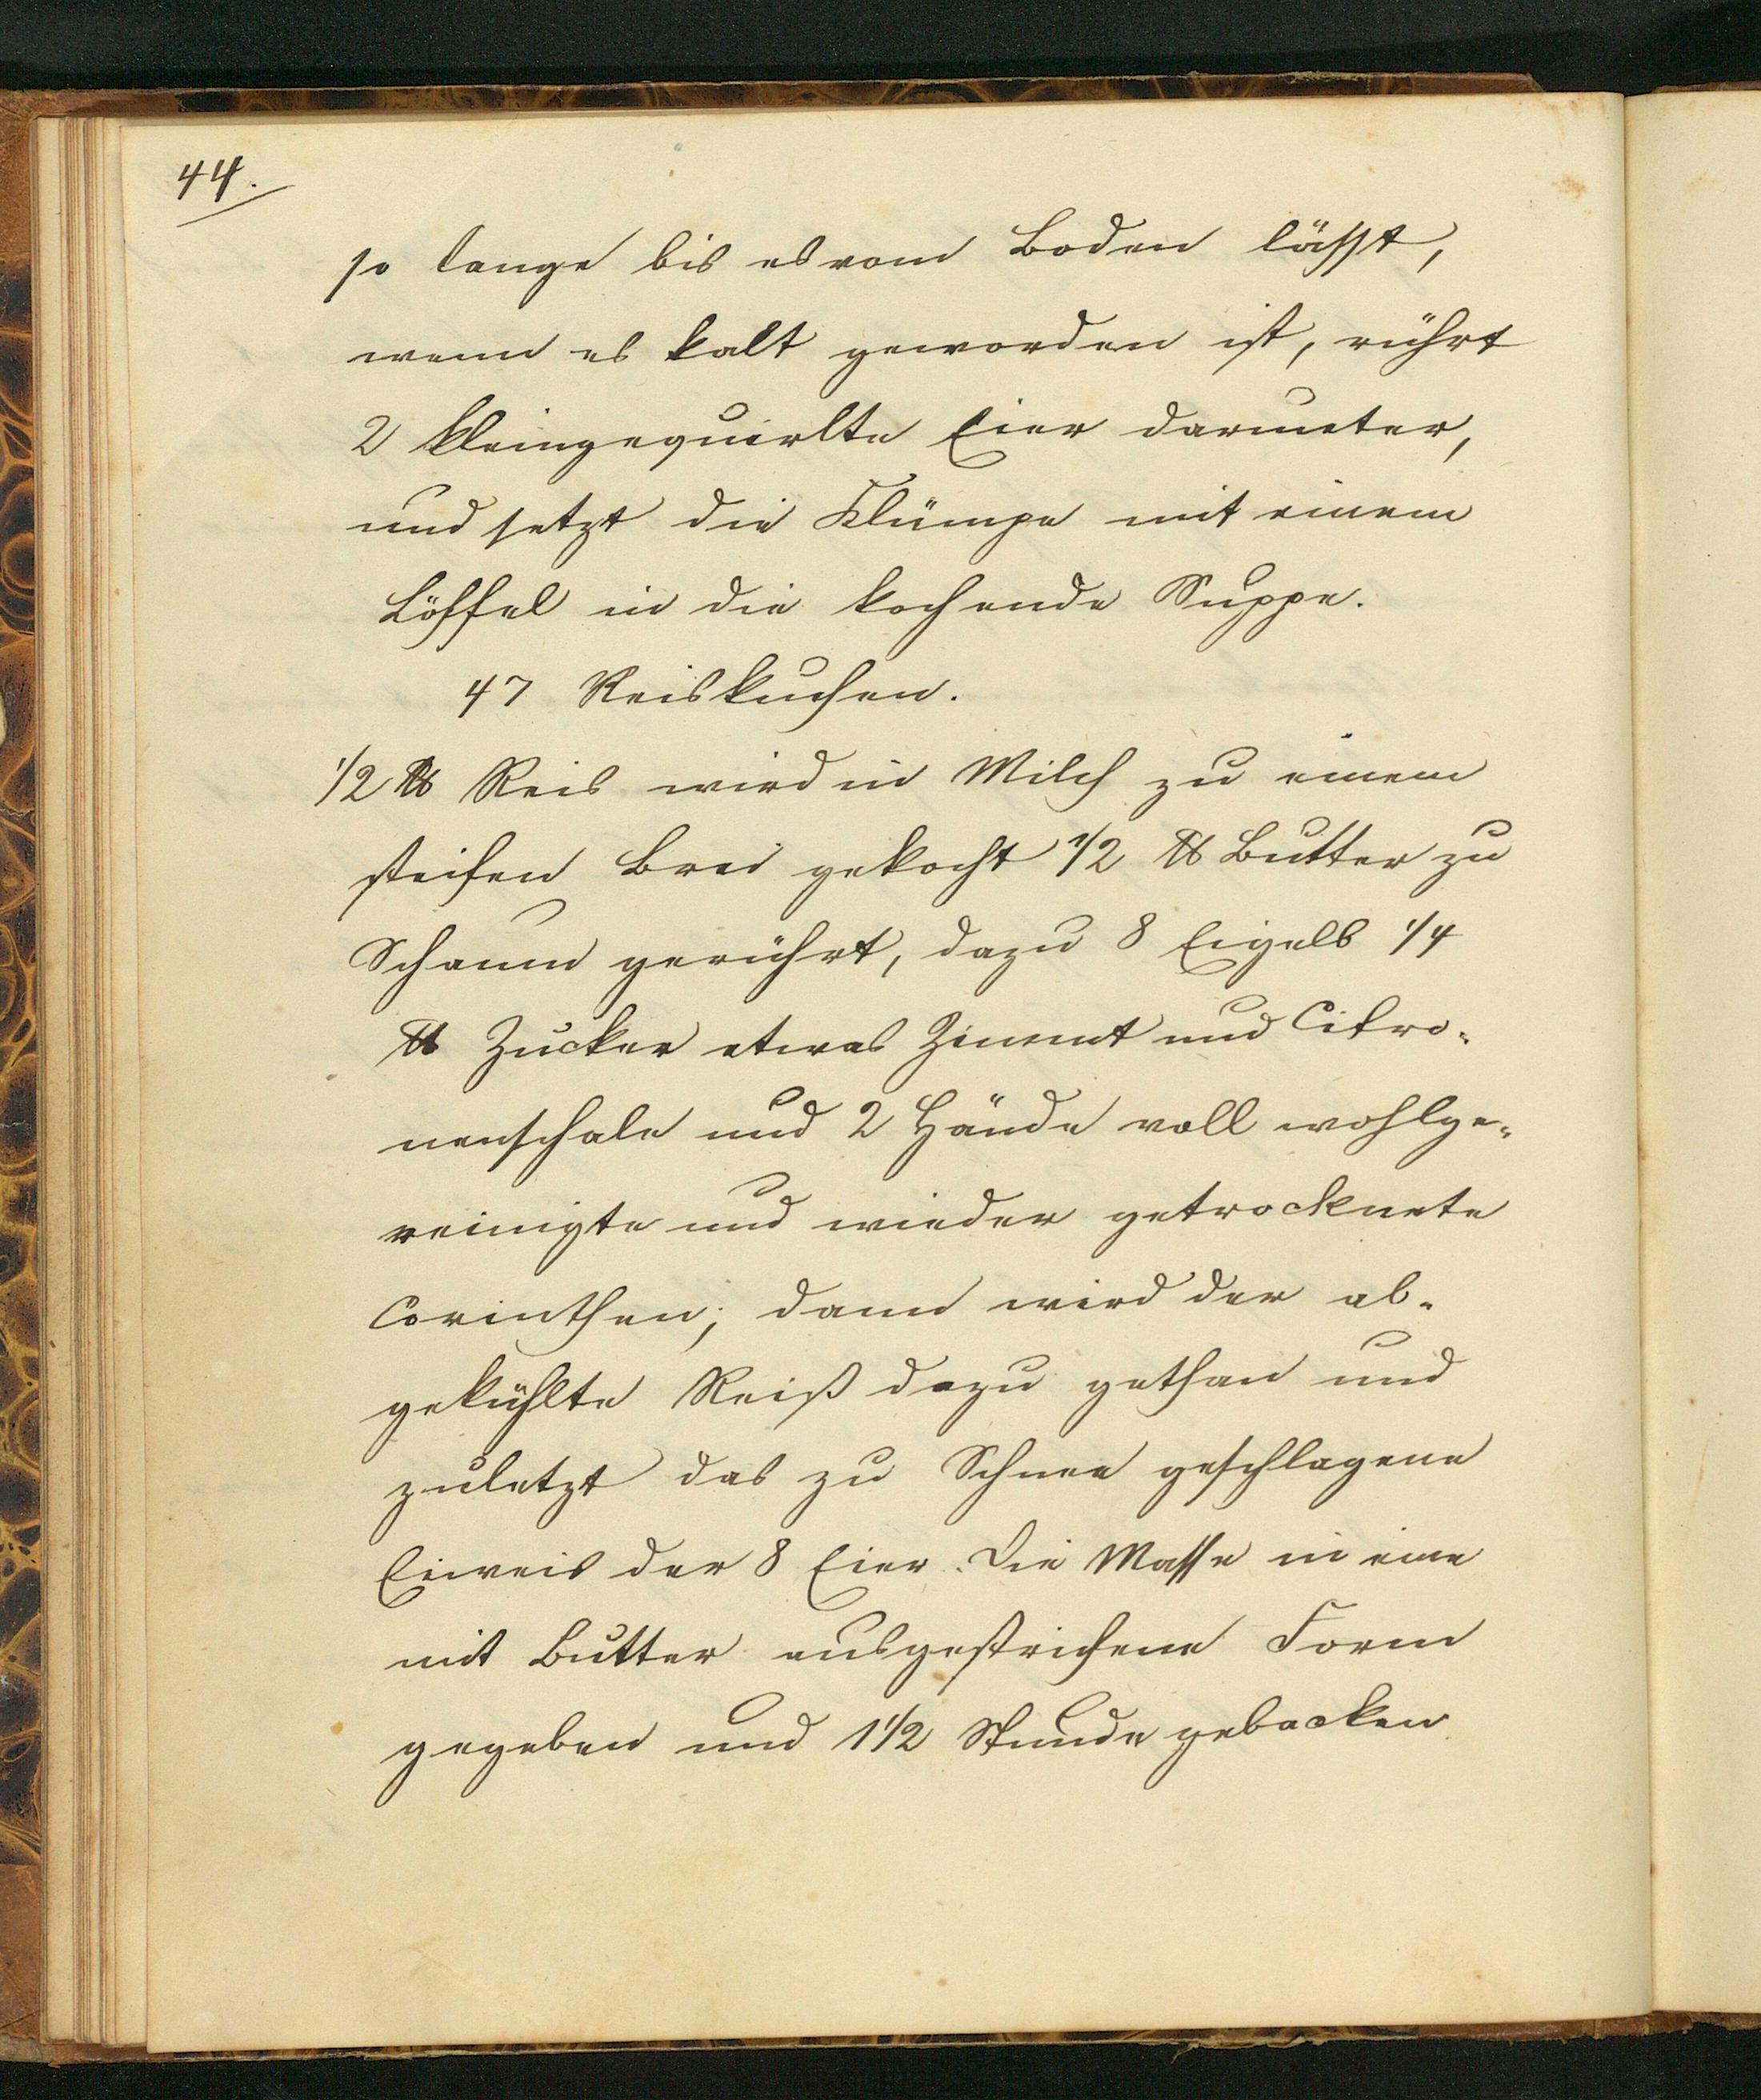 44.
so lange bis es vom Boden lässt,
wenn es kalt geworden ist, rührt
2 kleingequirlte Eier darunter,
und setzt die Klümpe mit einem
Löffel in die kochende Suppe.
47 Reiskuchen.
1/2 ℔ Reis wird in Milch zu einem
steifen Brei gekocht 1/2 ℔ Butter zu
Schaum gerührt, dazu 8 Eigelb 1/4
℔ Zucker etwas Zimmt und Citro-
nenschale und 2 Hände voll wohlge-
reinigte und wieder getrocknete
Corinthen; dann wird der ab-
gekühlte Reiß dazu gethan und
zuletzt das zu Schnee geschlagene
Eiweis der 8 Eier. Die Masse in eine
mit Butter ausgestrichene Form
gegeben und 1 1/2 Stunde gebacken